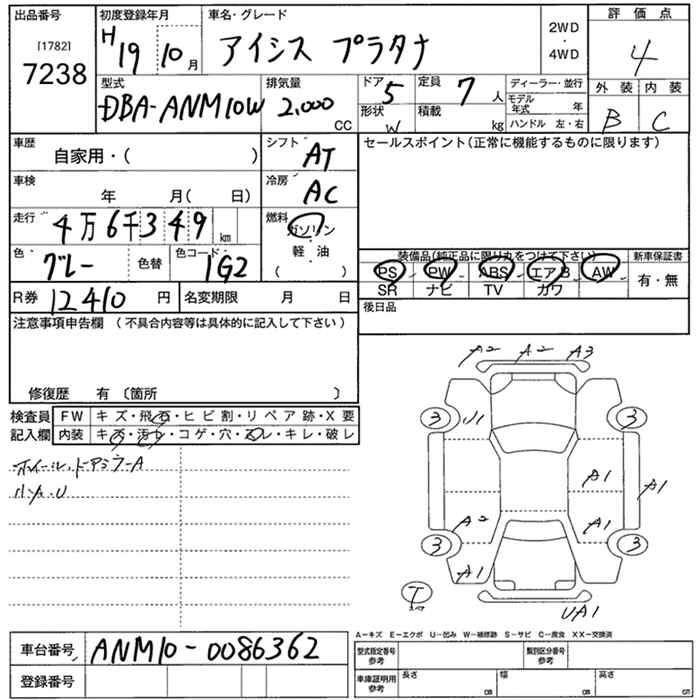 出品番号 初度登録年月 車名・グレード 評価点
[1782]
7238
H19 10月 アイシス プラタナ 2WD・4WD 4
型式 排気量 ドア 5 定員 7人 ディーラー・並行 外装 内装
DBA-ANM10W 2,000 CC 形状 W 積載 kg モデル年式 年 B C
ハンドル 左・右
車歴 自家用・( ) シフト AT セールスポイント(正常に機能するものに限ります)
車検 年 月( 日) 冷房 AC
走行 4万6千349 km 燃料 ガソリン・軽・油 ( )
色 グレー 色替 色コード 1G2 装備品(純正品に限り丸をつけて下さい) 新車保証書
PS PW ABS エアB AW 有・無
SR ナビ TV カワ
R券 12410円 名変期限 月 日 後日品
注意事項申告欄 (不具合内容等は具体的に記入して下さい)
修復歴 有 〔箇所 〕
検査員 FW キズ・飛石・ヒビ割・リペア跡・X要
記入欄 内装 キズ・汚レ・コゲ・穴・スレ・キレ・破レ
ホイール、ドアミラーA
小A.U
A2 A2 A3
3 U1 3
A1 A1
A2 A1
3 3
A1
T UA1
A-キズ E-エクボ U-凹み W-補修跡 S-サビ C-腐食 XX-交換済
車台番号 ANM10-0086362 型式指定番号 参考 類別区分番号 参考
登録番号 車庫証明用 参考 長さ cm 幅 cm 高さ cm